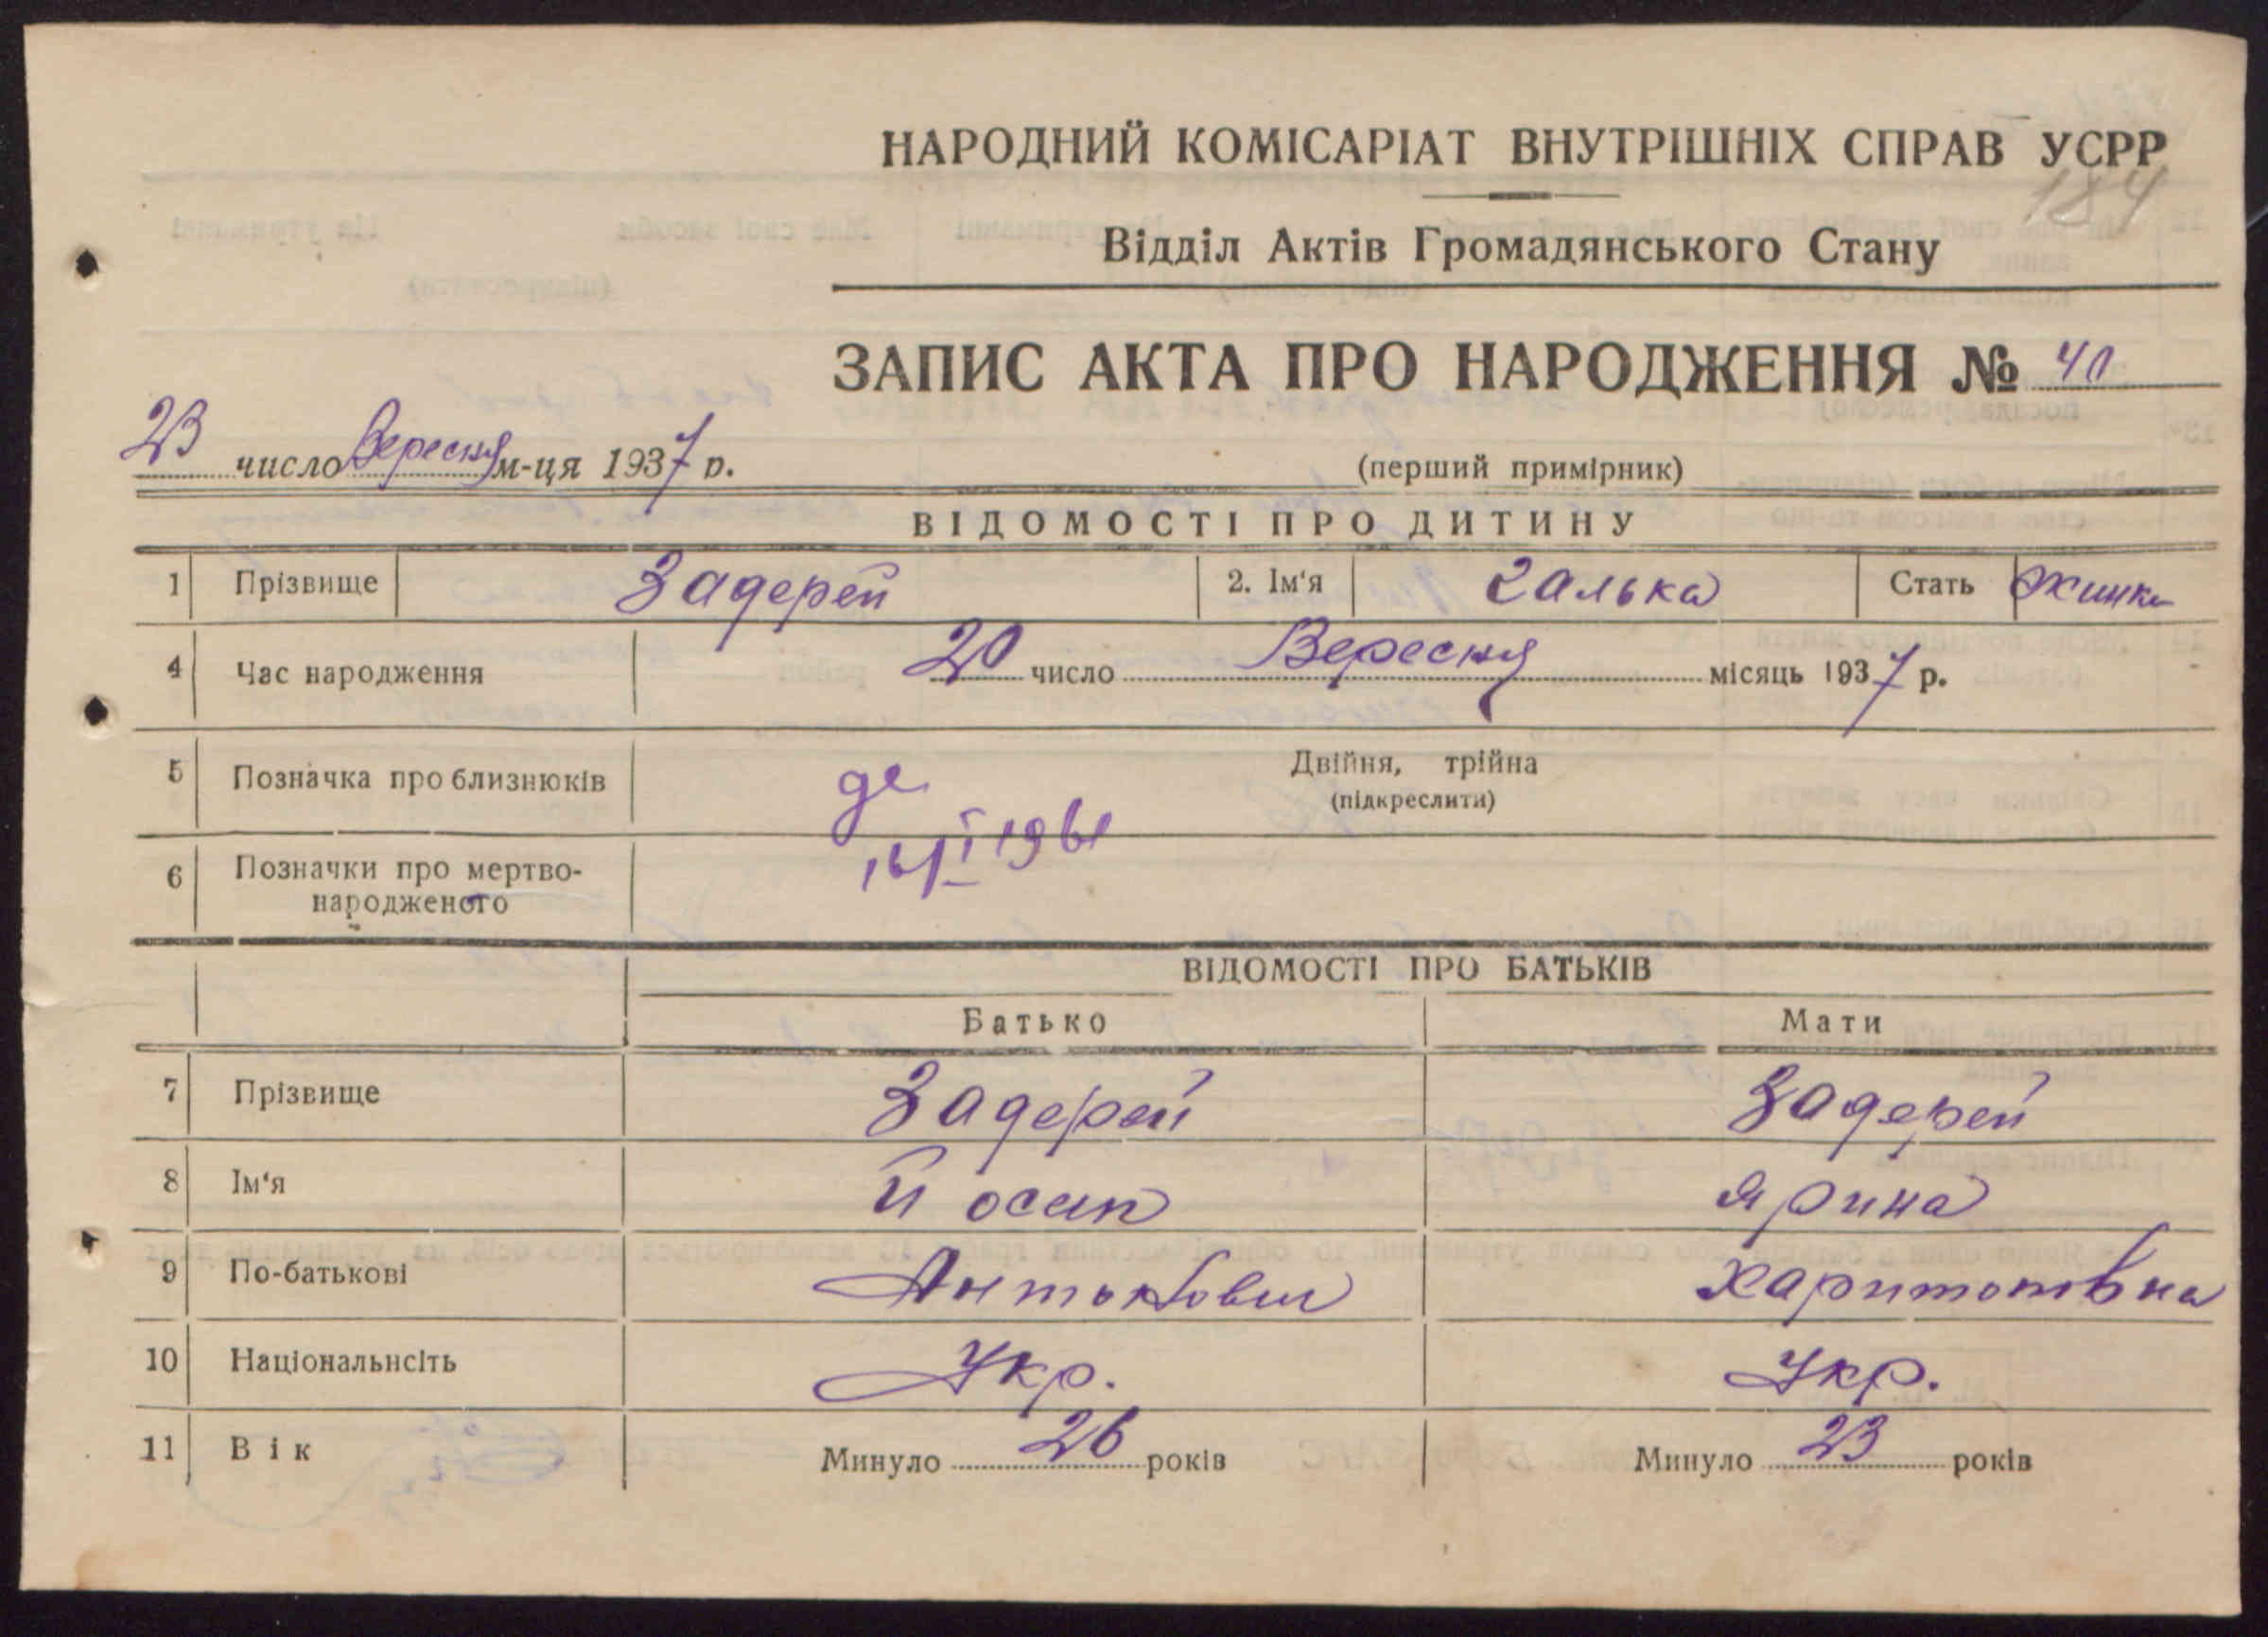 НАРОДНИЙ КОМІСАРІАТ ВНУТРІШНІХ СПРАВ УСРР
184
Відділ Актів Громадянського Стану
ЗАПИС АКТА ПРО НАРОДЖЕННЯ №
23 число Вересня м-ця 1937 р.
(перший примірник)
ВІДОМОСТІ ПРО ДИТИНУ
1 Прізвище Задерей 2. Ім'я Галька Стать Жинка
4 Час народження 20 число Вересня місяць 1937 р.
5 Позначка про близнюків Двійня, трійна
(підкреслити)
1961
6 Позначки про мертво-
народженого
ВІДОМОСТІ ПРО БАТЬКІВ
Батько Мати
7 Прізвище Задерей Задерей
8 Ім'я Йосип Ярина
9 По-батькові Харитоновна
10 Національнсіть Укр. Укр.
11 Вік Минуло 26 років Минуло 23 років